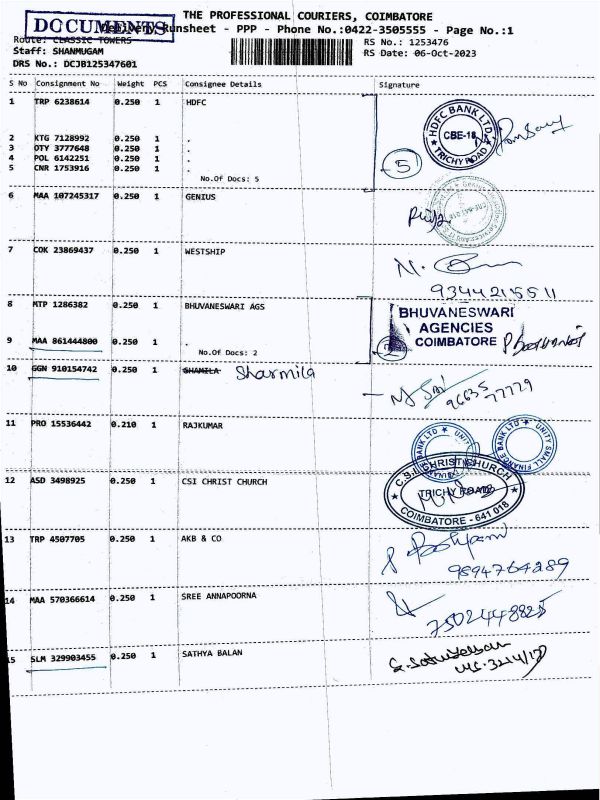 THE PROFESSIONAL COURIERS, COIMBATORE
DOCUMENTS
Delivery Runsheet - PPP - Phone No.:0422-3505555 - Page No.:1
Route: CLASSIC TOWERS
RS No.: 1253476
Staff: SHANMUGAM
RS Date: 06-Oct-2023
DRS No.: DCJB125347601
S No Consignment No Weight PCS Consignee Details Signature
1 TRP 6238614 0.250 1 HDFC
HDFC BANK LTD.
CBE-18
TRICHY ROAD
2 KTG 7128992 0.250 1 .
3 OTY 3777648 0.250 1 .
4 POL 6142251 0.250 1 .
5 CNR 1753916 0.250 1 .
5
No.Of Docs: 5
6 MAA 107245317 0.250 1 GENIUS
Priya
7 COK 23869437 0.250 1 WESTSHIP
9344215511
8 MTP 1286382 0.250 1 BHUVANESWARI AGS
BHUVANESWARI
AGENCIES
COIMBATORE
9 MAA 861444800 0.250 1 .
2
No.Of Docs: 2
10 GGN 910154742 0.250 1 SHAMILA Sharmila
96635
77779
11 PRO 15536442 0.210 1 RAJKUMAR
UNITY SMALL FINANCE BANK LTD
12 ASD 3498925 0.250 1 CSI CHRIST CHURCH
C.S.I. CHRIST CHURCH
TRICHY ROAD
COIMBATORE - 641 018
13 TRP 4507705 0.250 1 AKB & CO
9894764289
14 MAA 570366614 0.250 1 SREE ANNAPOORNA
7502448825
15 SLM 329903455 0.250 1 SATHYA BALAN